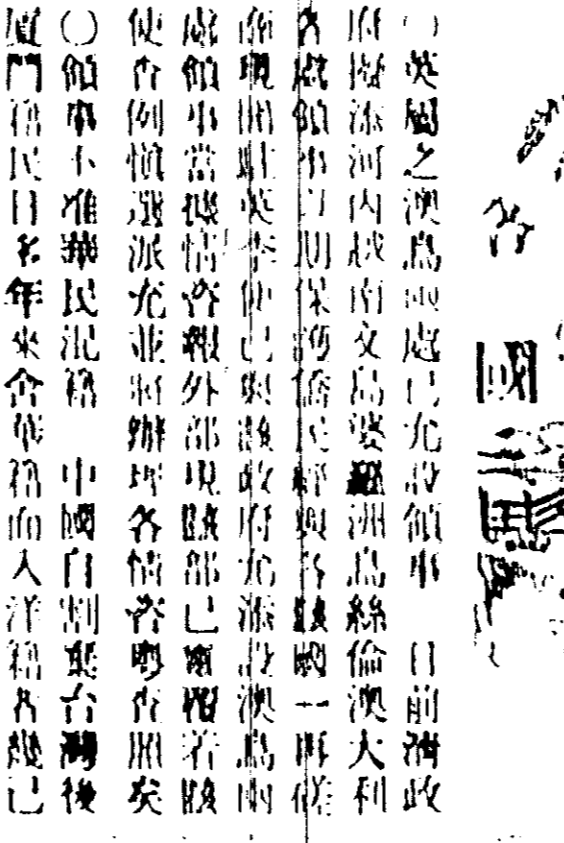 各國
〇英屬之澳島兩處已允設領事 目前清政
府擬添河內越南文島婆羅洲烏絲倫澳大利
各處領事以期保護僑民經與各該國一再磋
商現聞駐英李使已與該政府允添設澳島兩
處領事當據情咨報外部現聽部已電覆若該
使查例慎選派充並將辦理各情咨粵查照矣
〇領事不准華民混籍 中國自割棄台灣後
廈門籍民日多年來舍華籍而入洋籍者幾已